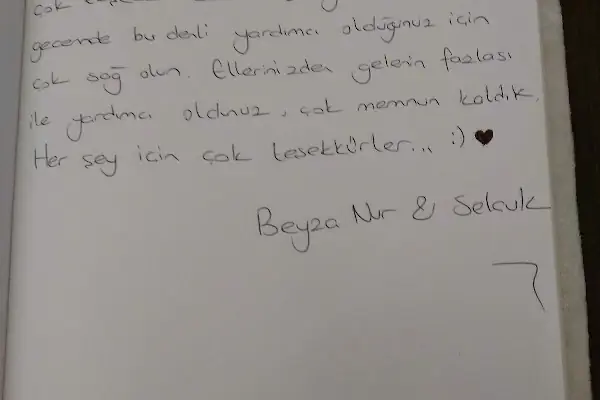 çok
gecemde bu denli yardımcı olduğunuz için
çok sağ olun. Ellerinizden gelenin fazlası
ile yardımcı oldunuz, çok memnun kaldık.
Her şey için çok teşekkürler... :) ♥
Beyza Nur & Selçuk